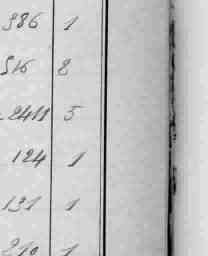 986 1
516 2
2411 5
124 1
131 1
210 1